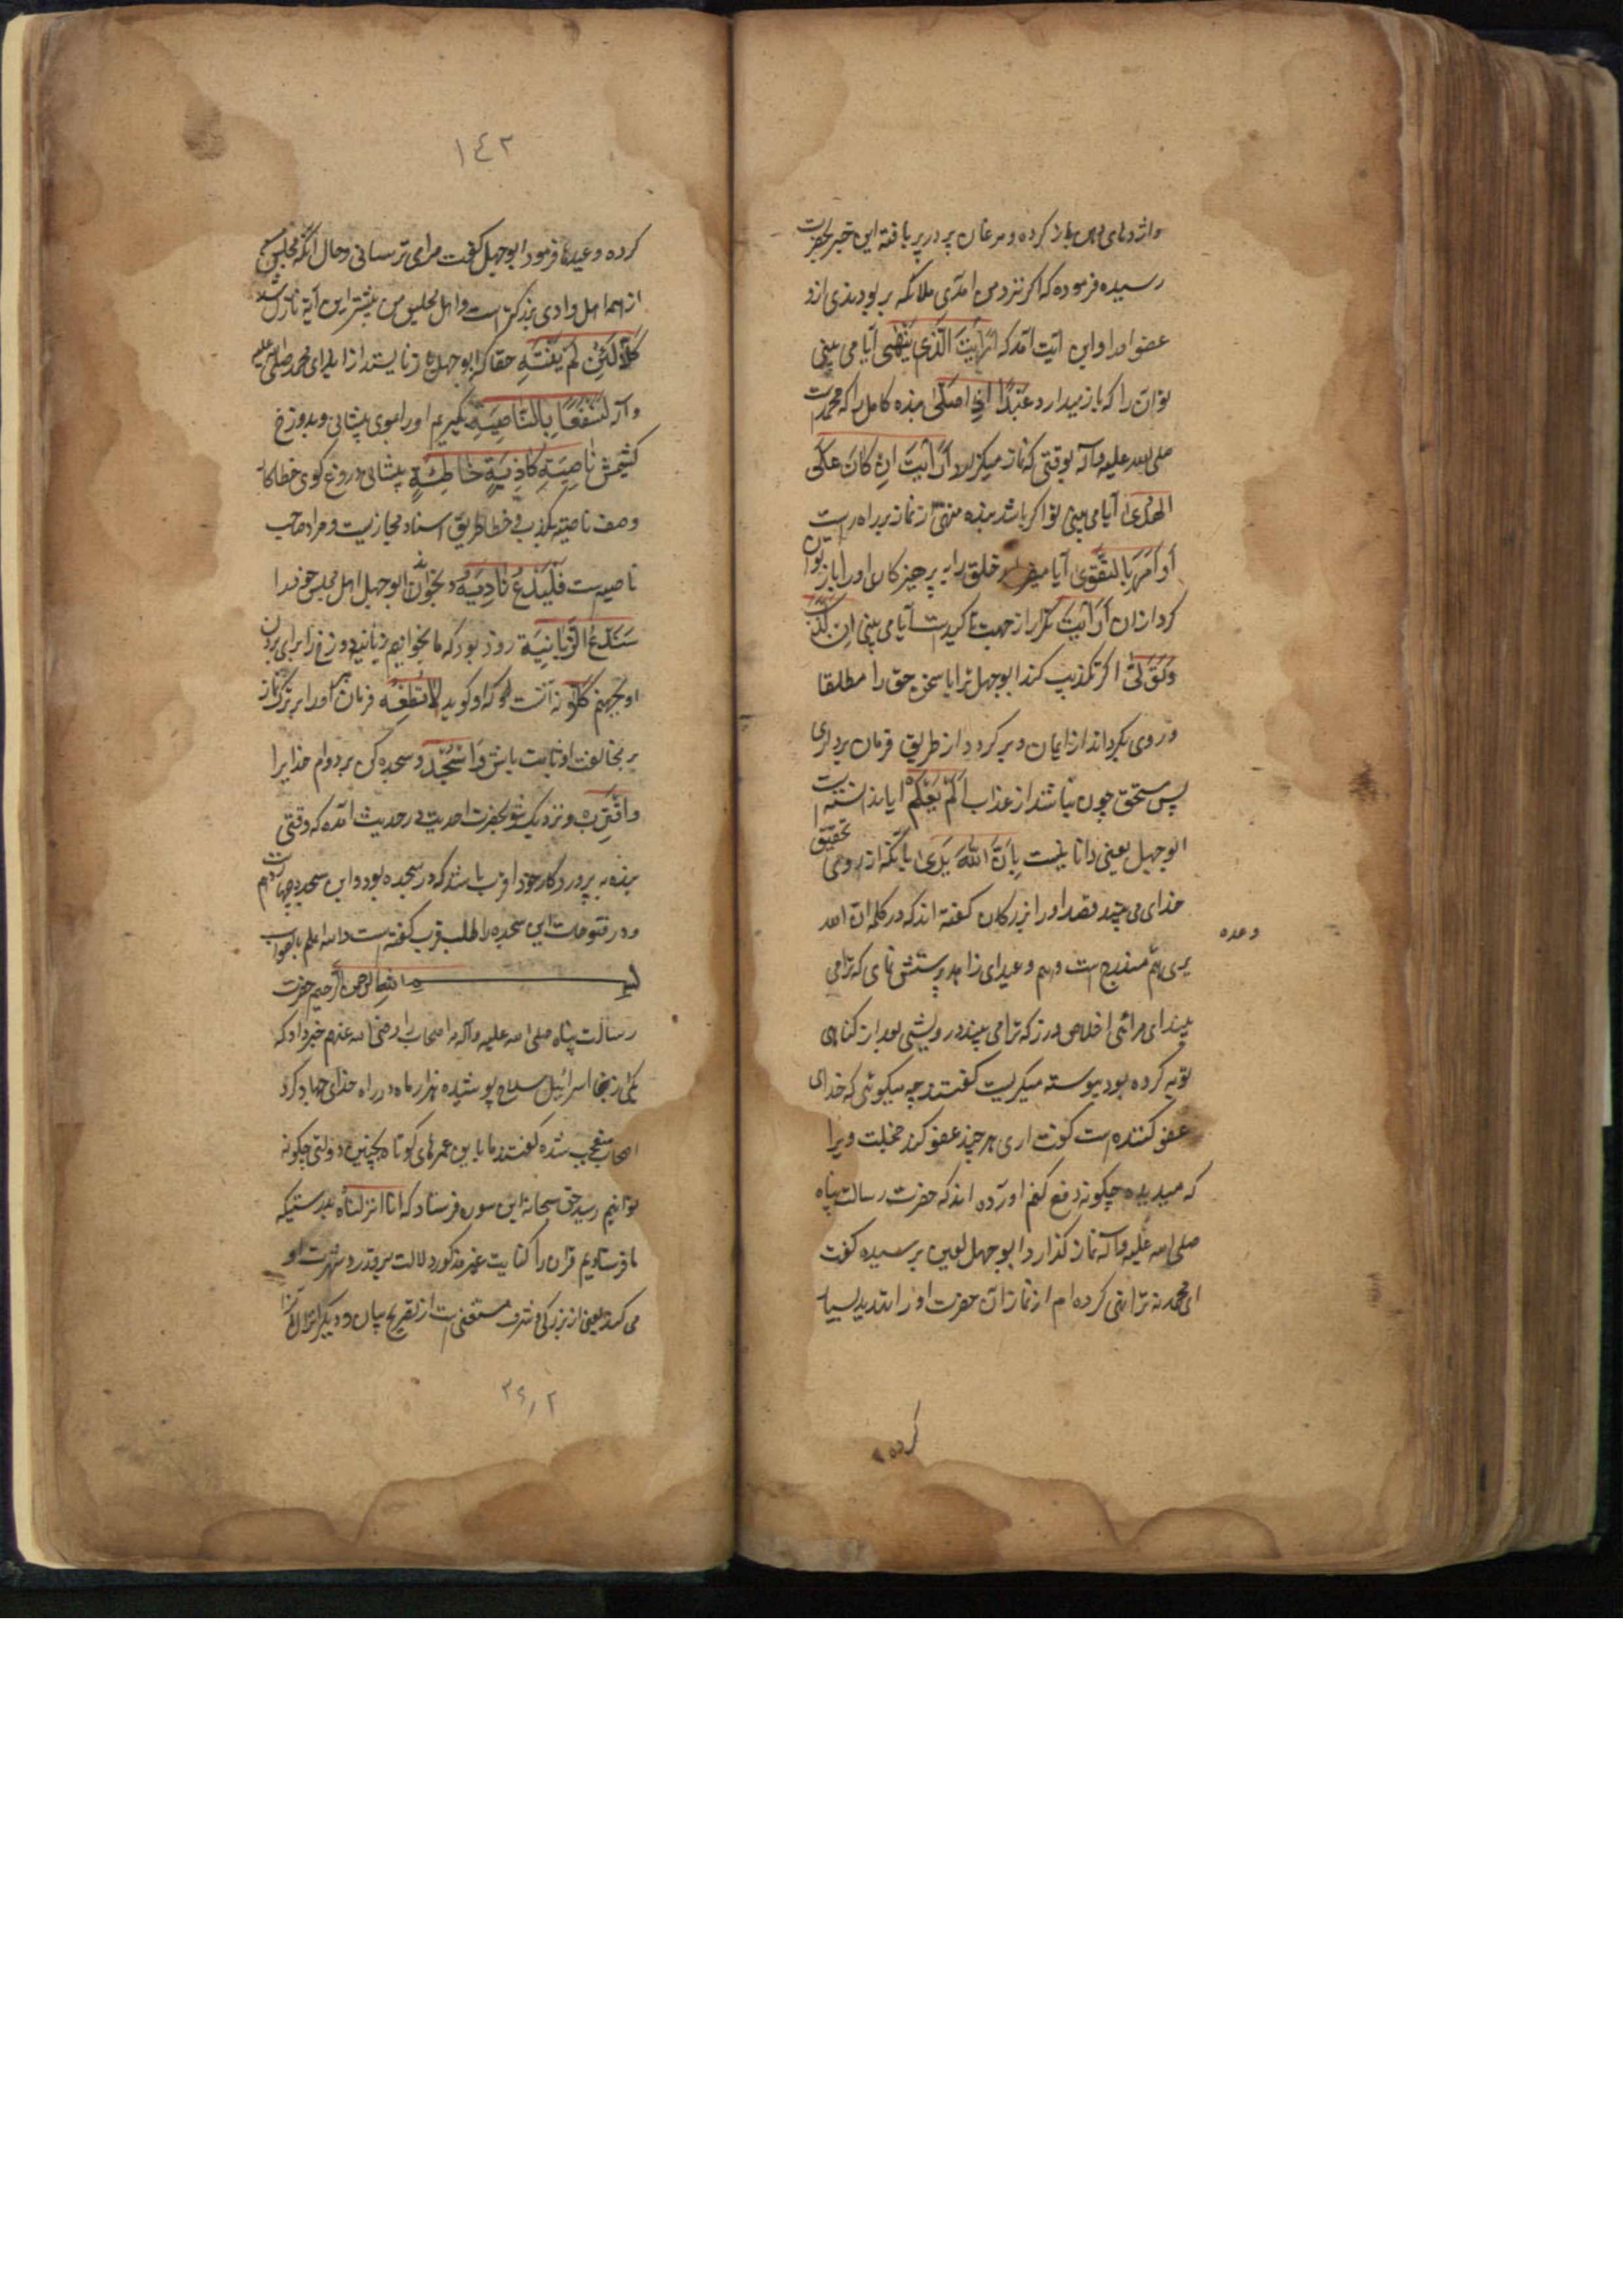 واژدهای دهن باز کرده و مرغان پر در پر بافته این خبر بحضرت
رسیده فرموده که اگر نزد من آمدی ملائکه بربودندی ازو
عضو او را و این آیت آمد که اَرَاَیْتَ الَّذِي یَنْهٰی آیا می بینی
توان را که باز میدارد عَبْدًا اِذَا صَلّٰی بنده کامل را که محمدست
صلی الله علیه وآله بوقتی که نماز میگزارد اَرَاَیْتَ اِنْ کَانَ عَلَی
الهُدٰی آیا می بینی تو اگر باشد بنده منهی از نماز بر راه راست
اَوْ اَمَرَ بِالتَّقْوٰی آیا میفرماید خلق را به پرهیزکاری او را باز توان
کرد ازان اَرَاَیْتَ تکرار از جهت تاکیدست آیا می بینی اِنْ کَذَّبَ
وَتَوَلّٰی اگر تکذیب کند ابوجهل ترا یا سخن حق را مطلقا
و روی بگرداند از ایمان و برگردد از طریق فرمان برداری
پس مستحق چون نباشد از عذاب اَلَمْ یَعْلَمْ آیا ندانسته است
ابوجهل یعنی دانا نیست بِاَنَّ اللّٰهَ یَرٰی بآنکه از روی تحقیق
خدای می بیند قصد او را بزرگان گفته اند که در کلمه ان الله
وعده
یری هم مندرج است و هم وعید ای زاهد پرستش نمای که ترا می
بیند ای مرائی اخلاص ورز که ترا می بیند درویشی بعد از گناهی
توبه کرده بود پیوسته میگریست گفتند چه میگوئی که خدای
عفو کننده است گفت آری هر چند عفو کند خجلت ویرا
که میدیده چگونه دفع کنم آورده اند که حضرت رسالت پناه
صلی الله علیه وآله نماز گذارد ابوجهل لعین پرسیده گفت
ای محمد نه ترا نهی کرده ام از نماز آن حضرت او را تهدید بسیار
کرده
۱٤۲
کرده و عیدها فرمود ابوجهل گفت مرا می ترسانی و حال آنکه مجلس من
از همه اهل وادی بزرگتر است و اهل مجلس من بیشتر این آیه نازل شد
کَلَّا لَئِنْ لَمْ یَنْتَهِ حقا که ابوجهل باز نایستد از ایذای محمد صلی علیه
وآله لَنَسْفَعًا بِالنَّاصِیَةِ بگیریم او را بموی پیشانی و بدوزخ
کشیمش نَاصِیَةٍ کَاذِبَةٍ خَاطِئَةٍ پیشانی دروغ گوی خطاکار
وصف ناصیه بکذب و خطا طریق اسناد مجازیست و مراد صاحب
ناصیه است فَلْیَدْعُ نَادِیَهُ و بخواند ابوجهل اهل مجلس خود را
سَنَدْعُ الزَّبَانِیَةَ زود بود که ما بخوانیم زبانیه دوزخ را برای بردن
او بجهنم کَلَّا نه آنست که او گوید لَا تُطِعْهُ فرمان مبر او را بترک نماز
بر مخالفت او ثابت باش وَاسْجُدْ و سجده کن بر دوام خدایرا
وَاقْتَرِبْ و نزدیک شو بحضرت احدیت در حدیث آمده که وقتی
بنده به پروردگار خود اقرب باشد که در سجده بود و این سجده چهاردهم است
و در فتوحات این سجده را طلب قرب گفته است والله اعلم بالصواب
بسم الله الرحمن الرحیم حضرت
رسالت پناه صلی الله علیه وآله اصحاب را رضی الله عنهم خبر داد که
یکی از بنی اسرائیل سلاح پوشیده هزار ماه در راه خدای جهاد کرد
اصحاب متعجب شده گفتند ما با این عمرهای کوتاه بچنین دولتی چگونه
توانیم رسید حق سبحانه این سوره فرستاد که انا انزلناه بدرستیکه
ما فرستادیم قرآن را کنایت غیر مذکور دلالت بر قدر و شهرت او
می کند یعنی از بزرگی و شرف مستغنی است از تصریح بیان و دیگر انزال
۲۶٫۲